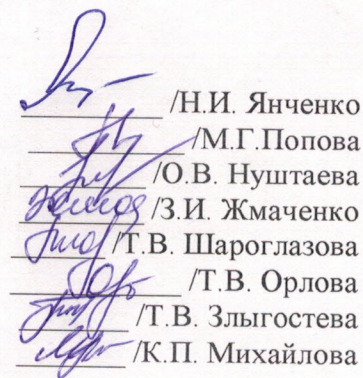 /Н.И. Янченко
/М.Г.Попова
/О.В. Нуштаева
/З.И. Жмаченко
/Т.В. Шароглазова
/Т.В. Орлова
/Т.В. Злыгостева
/К.П. Михайлова